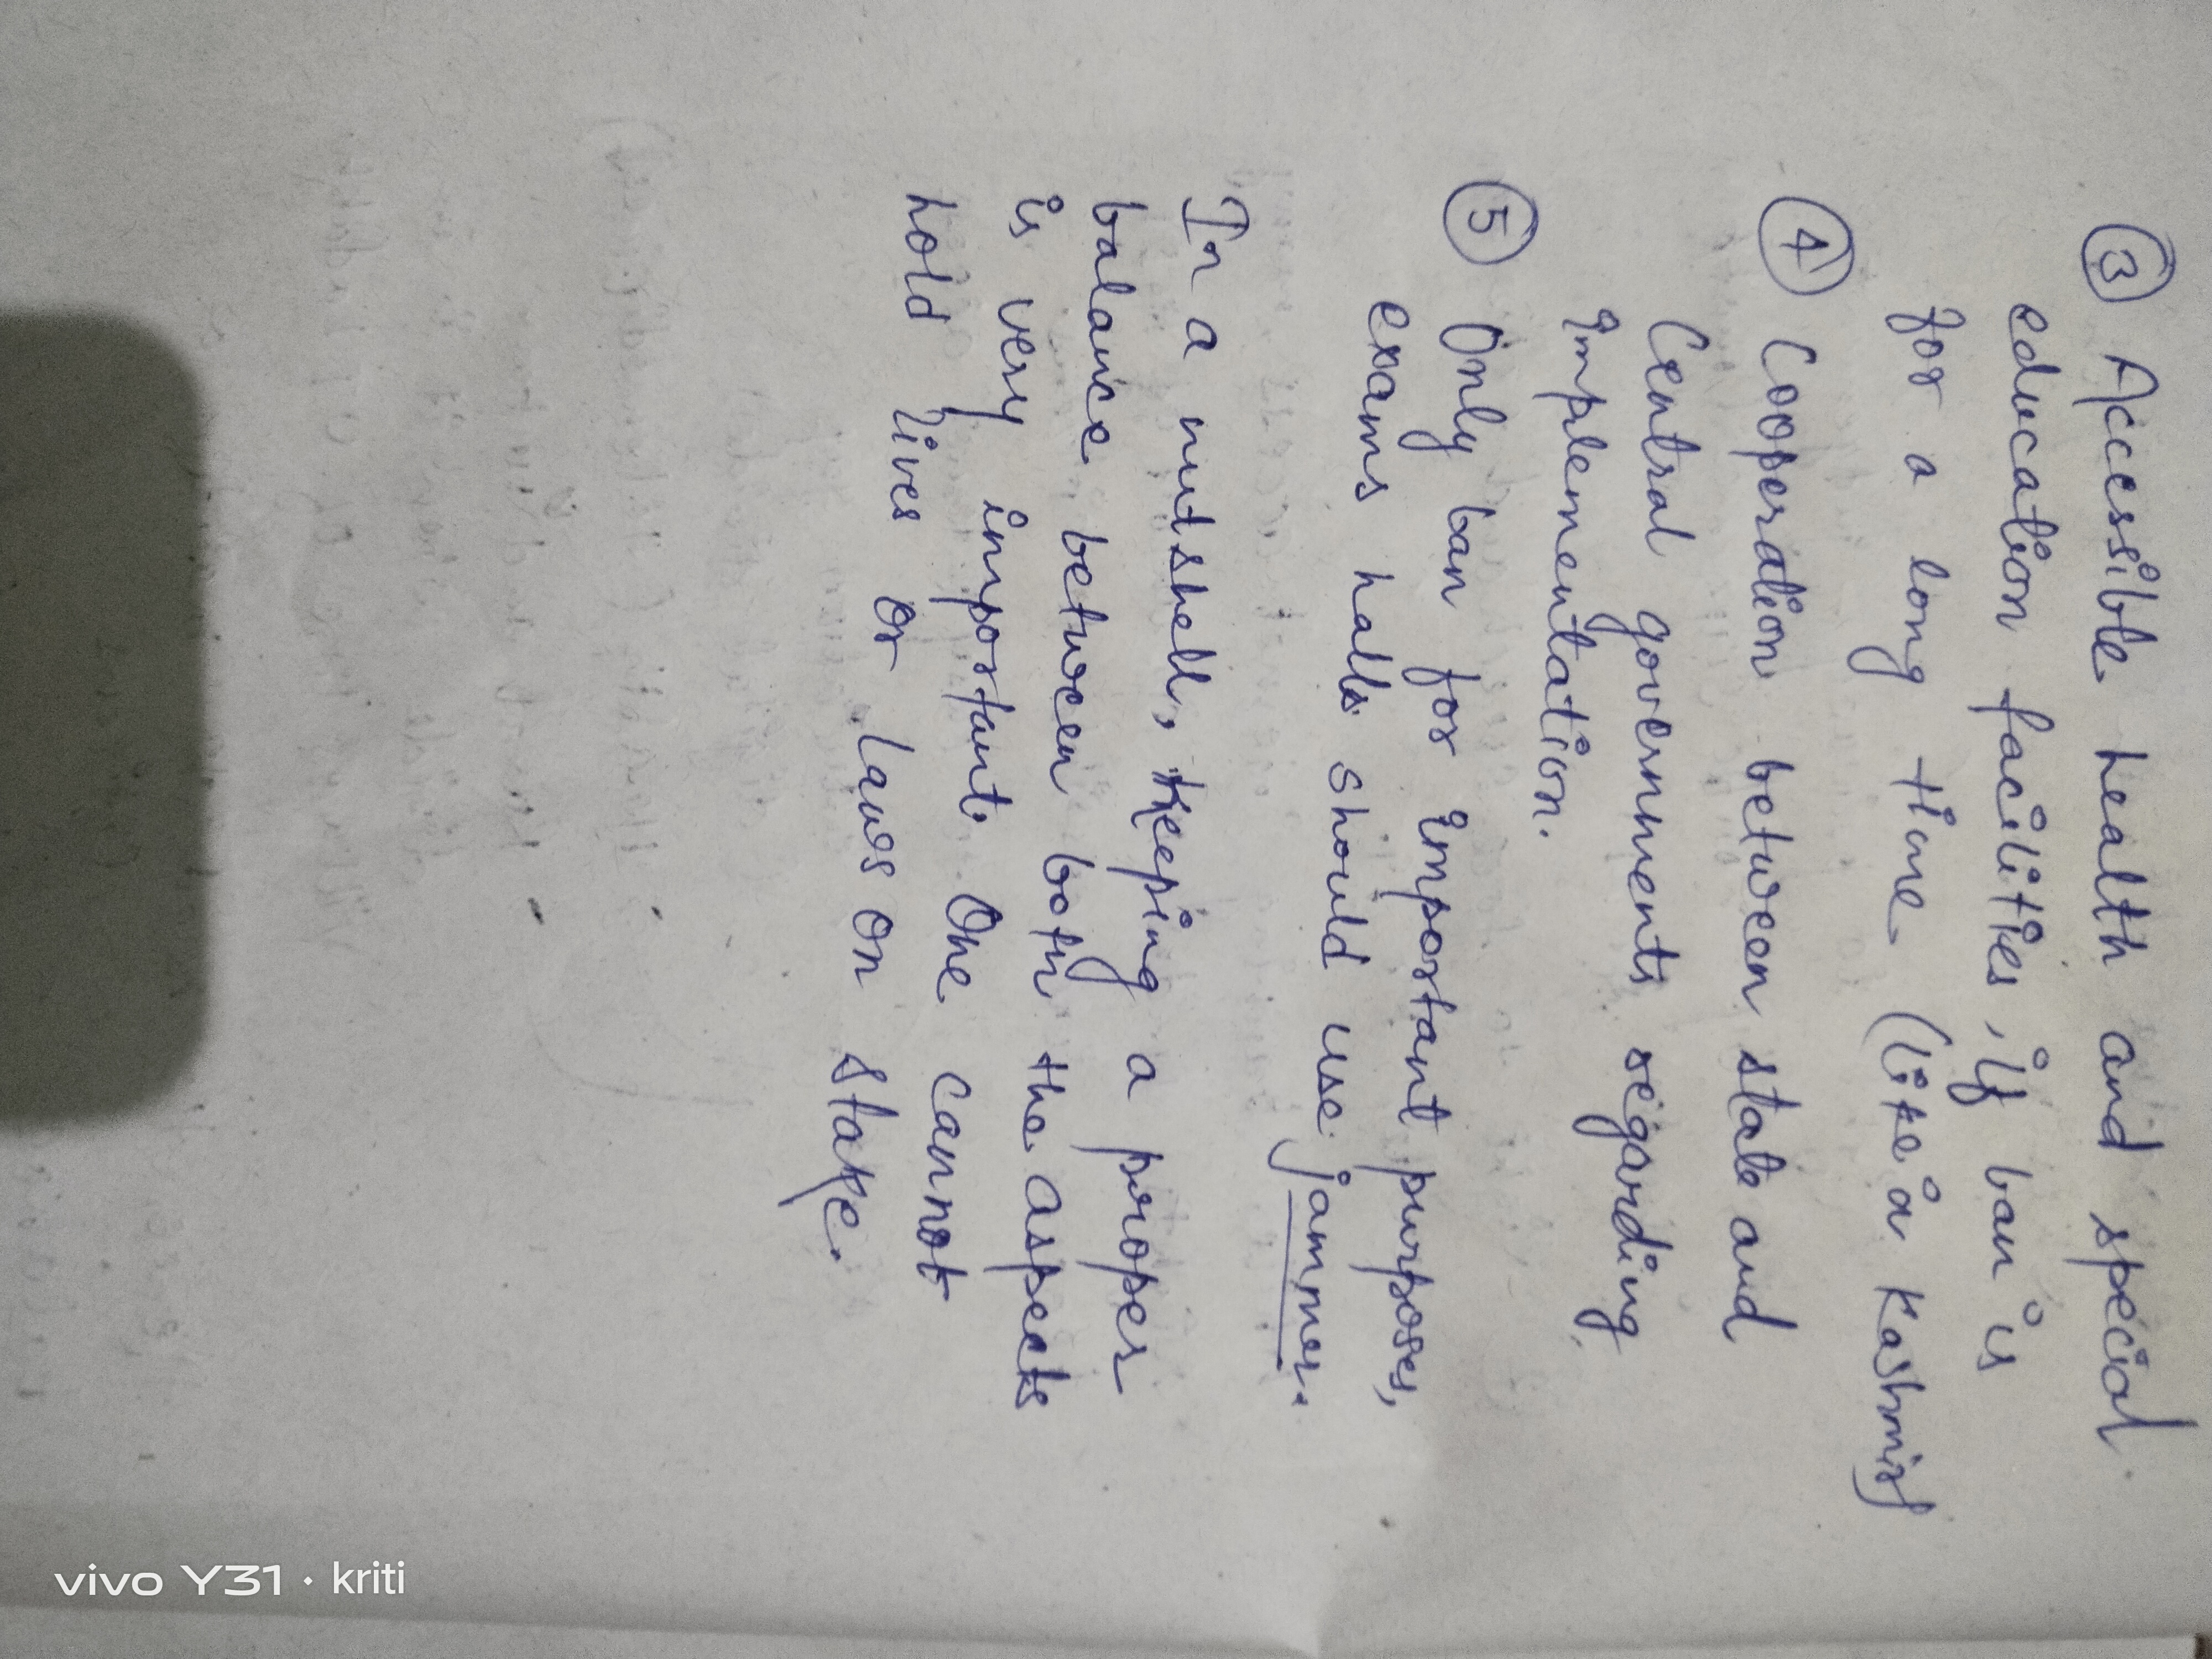 ③ Accessible health and special
education facilities, if ban is
for a long time (like in Kashmir)
④ Cooperation between state and
Central governments regarding
implementation.
⑤ Only ban for important purposes,
exams halls should use jammer.
In a nutshell, keeping a proper
balance between both the aspects
is very important. One cannot
hold lives or laws on stake.
vivo Y31 · kriti